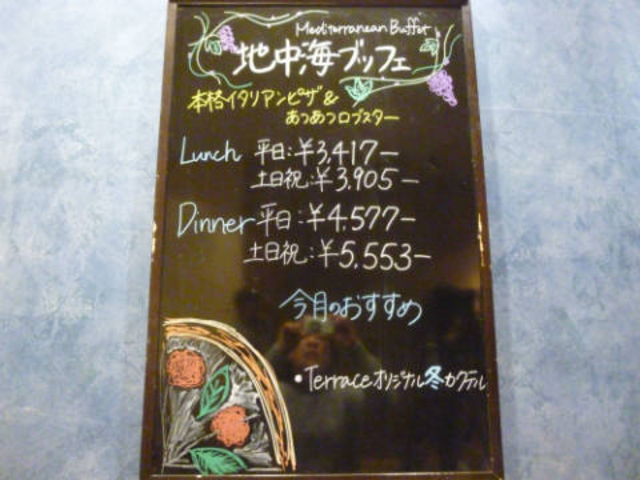 Mediterranean Buffet
地中海ブッフェ
本格イタリアンピザ&
あつあつロブスター
Lunch 平日:¥3,417−
土日祝:¥3,905−
Dinner 平日:¥4,577−
土日祝:¥5,553−
今月のおすすめ
・Terraceオリジナル冬カクテル